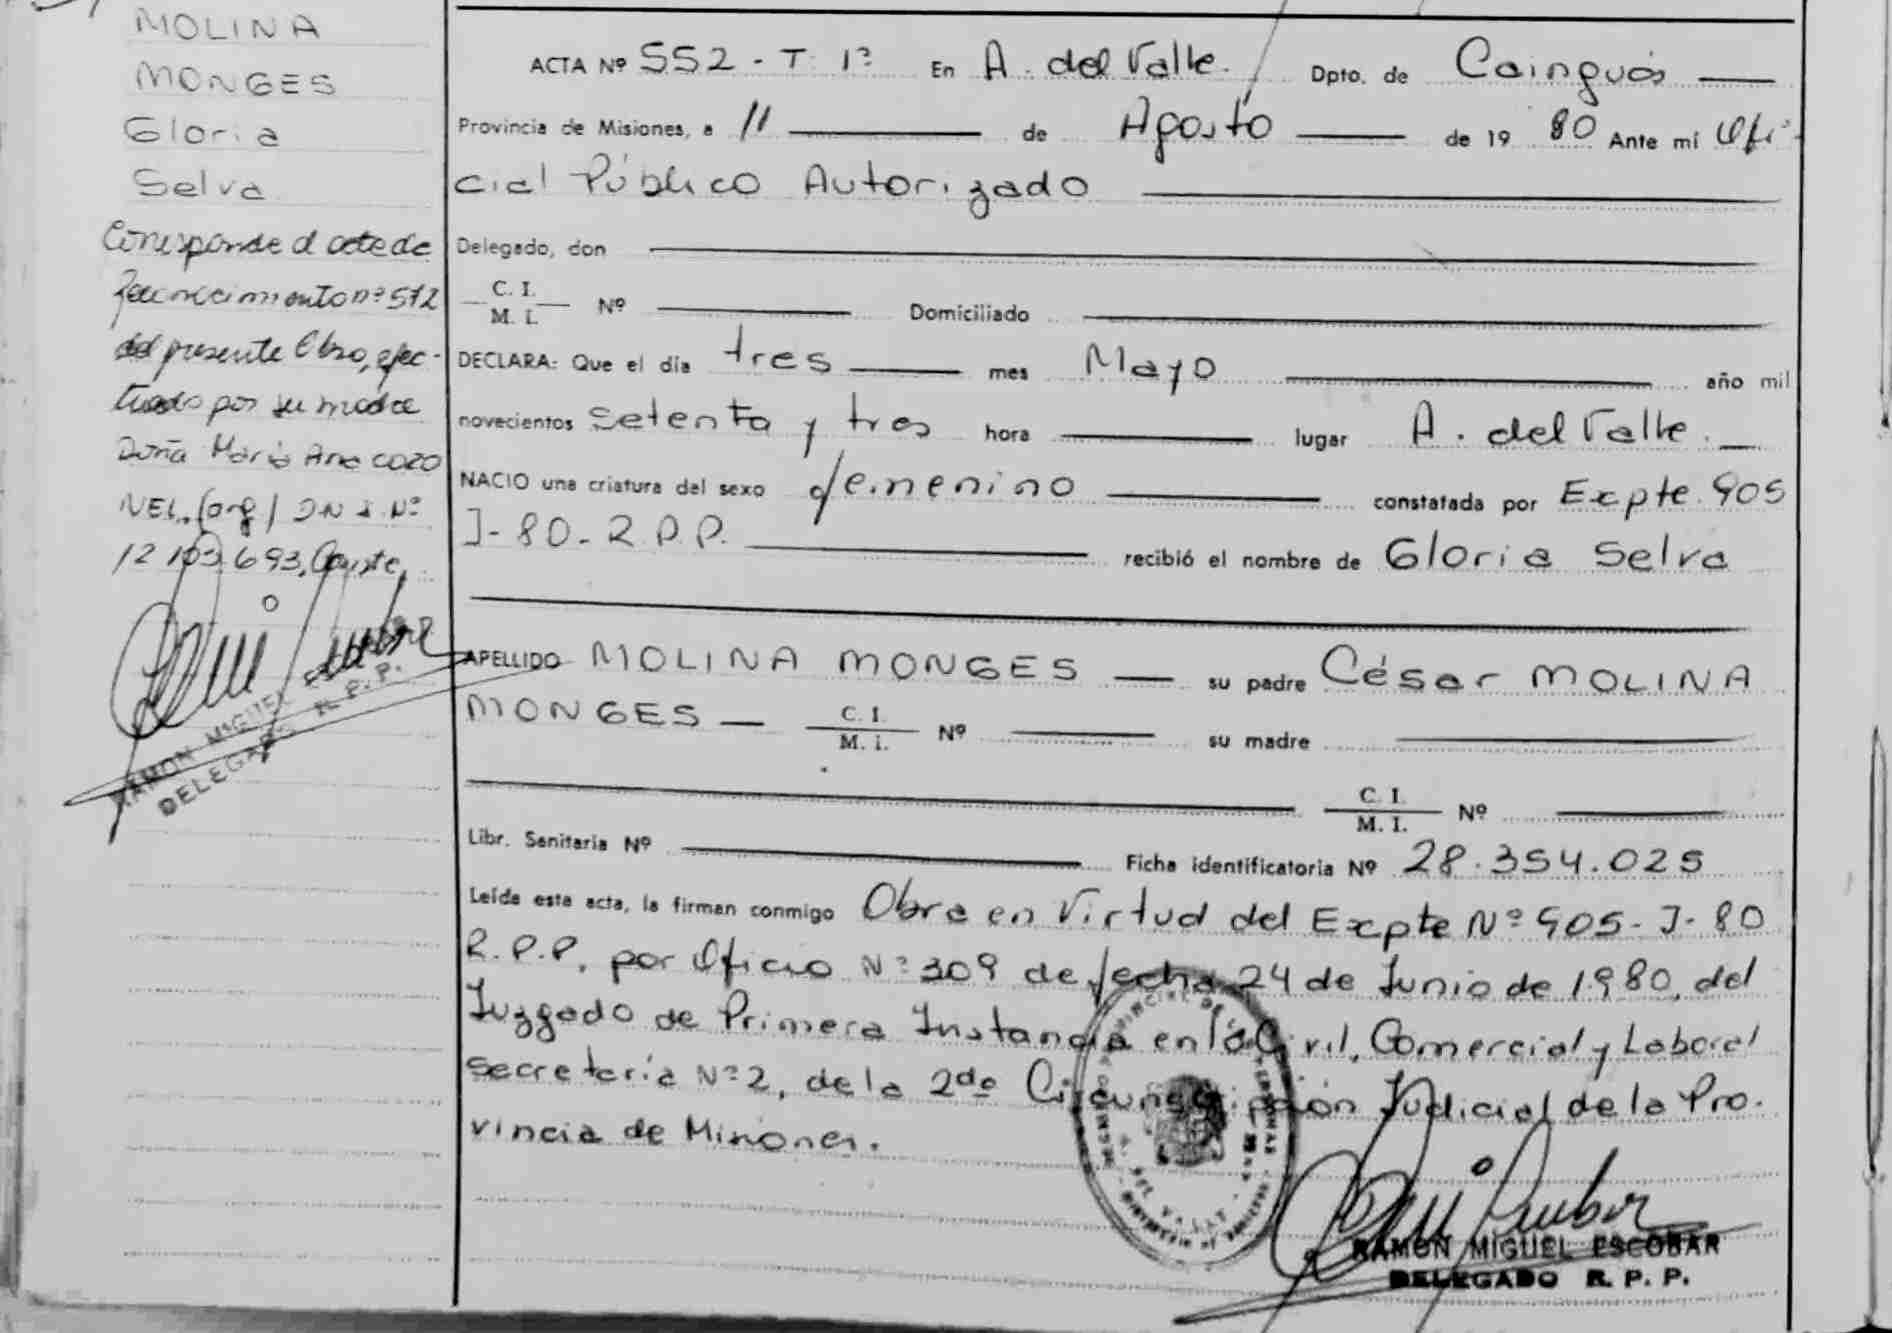 MOLINA
MONGES
Gloria
Selva
Corresponde al acta de
Reconocimiento nº 512
del presente libro, efec-
tuado por su madre
Doña María Ana CORO
NEL, (arg) DNI Nº
12.193.693, Conste.
RAMON MIGUEL ESCOBAR
DELEGADO R. P. P.
ACTA Nº 552 - T. 1º En A. del Valle. Dpto. de Cainguás
Provincia de Misiones, a 11 de Agosto de 19 80 Ante mí Ofi-
cial Público Autorizado
Delegado, don
C. I.
M. I. Nº Domiciliado
DECLARA: Que el día tres mes Mayo año mil
novecientos setenta y tres hora lugar A. del Valle.
NACIO una criatura del sexo femenino constatada por Expte. 905
J-80-R.P.P. recibió el nombre de Gloria Selva
APELLIDO MOLINA MONGES su padre César MOLINA
MONGES C. I. M. I. Nº su madre
C. I.
M. I. Nº
Libr. Sanitaria Nº Ficha identificatoria Nº 28.354.025
Leída esta acta, la firman conmigo Obra en Virtud del Expte Nº 905-J-80
R.P.P, por Oficio Nº 309 de fecha 24 de Junio de 1980, del
Juzgado de Primera Instancia en lo Civil, Comercial y Laboral
secretaría Nº 2, de la 2da Circunscripción Judicial de la Pro-
vincia de Misiones.
RAMON MIGUEL ESCOBAR
DELEGADO R. P. P.